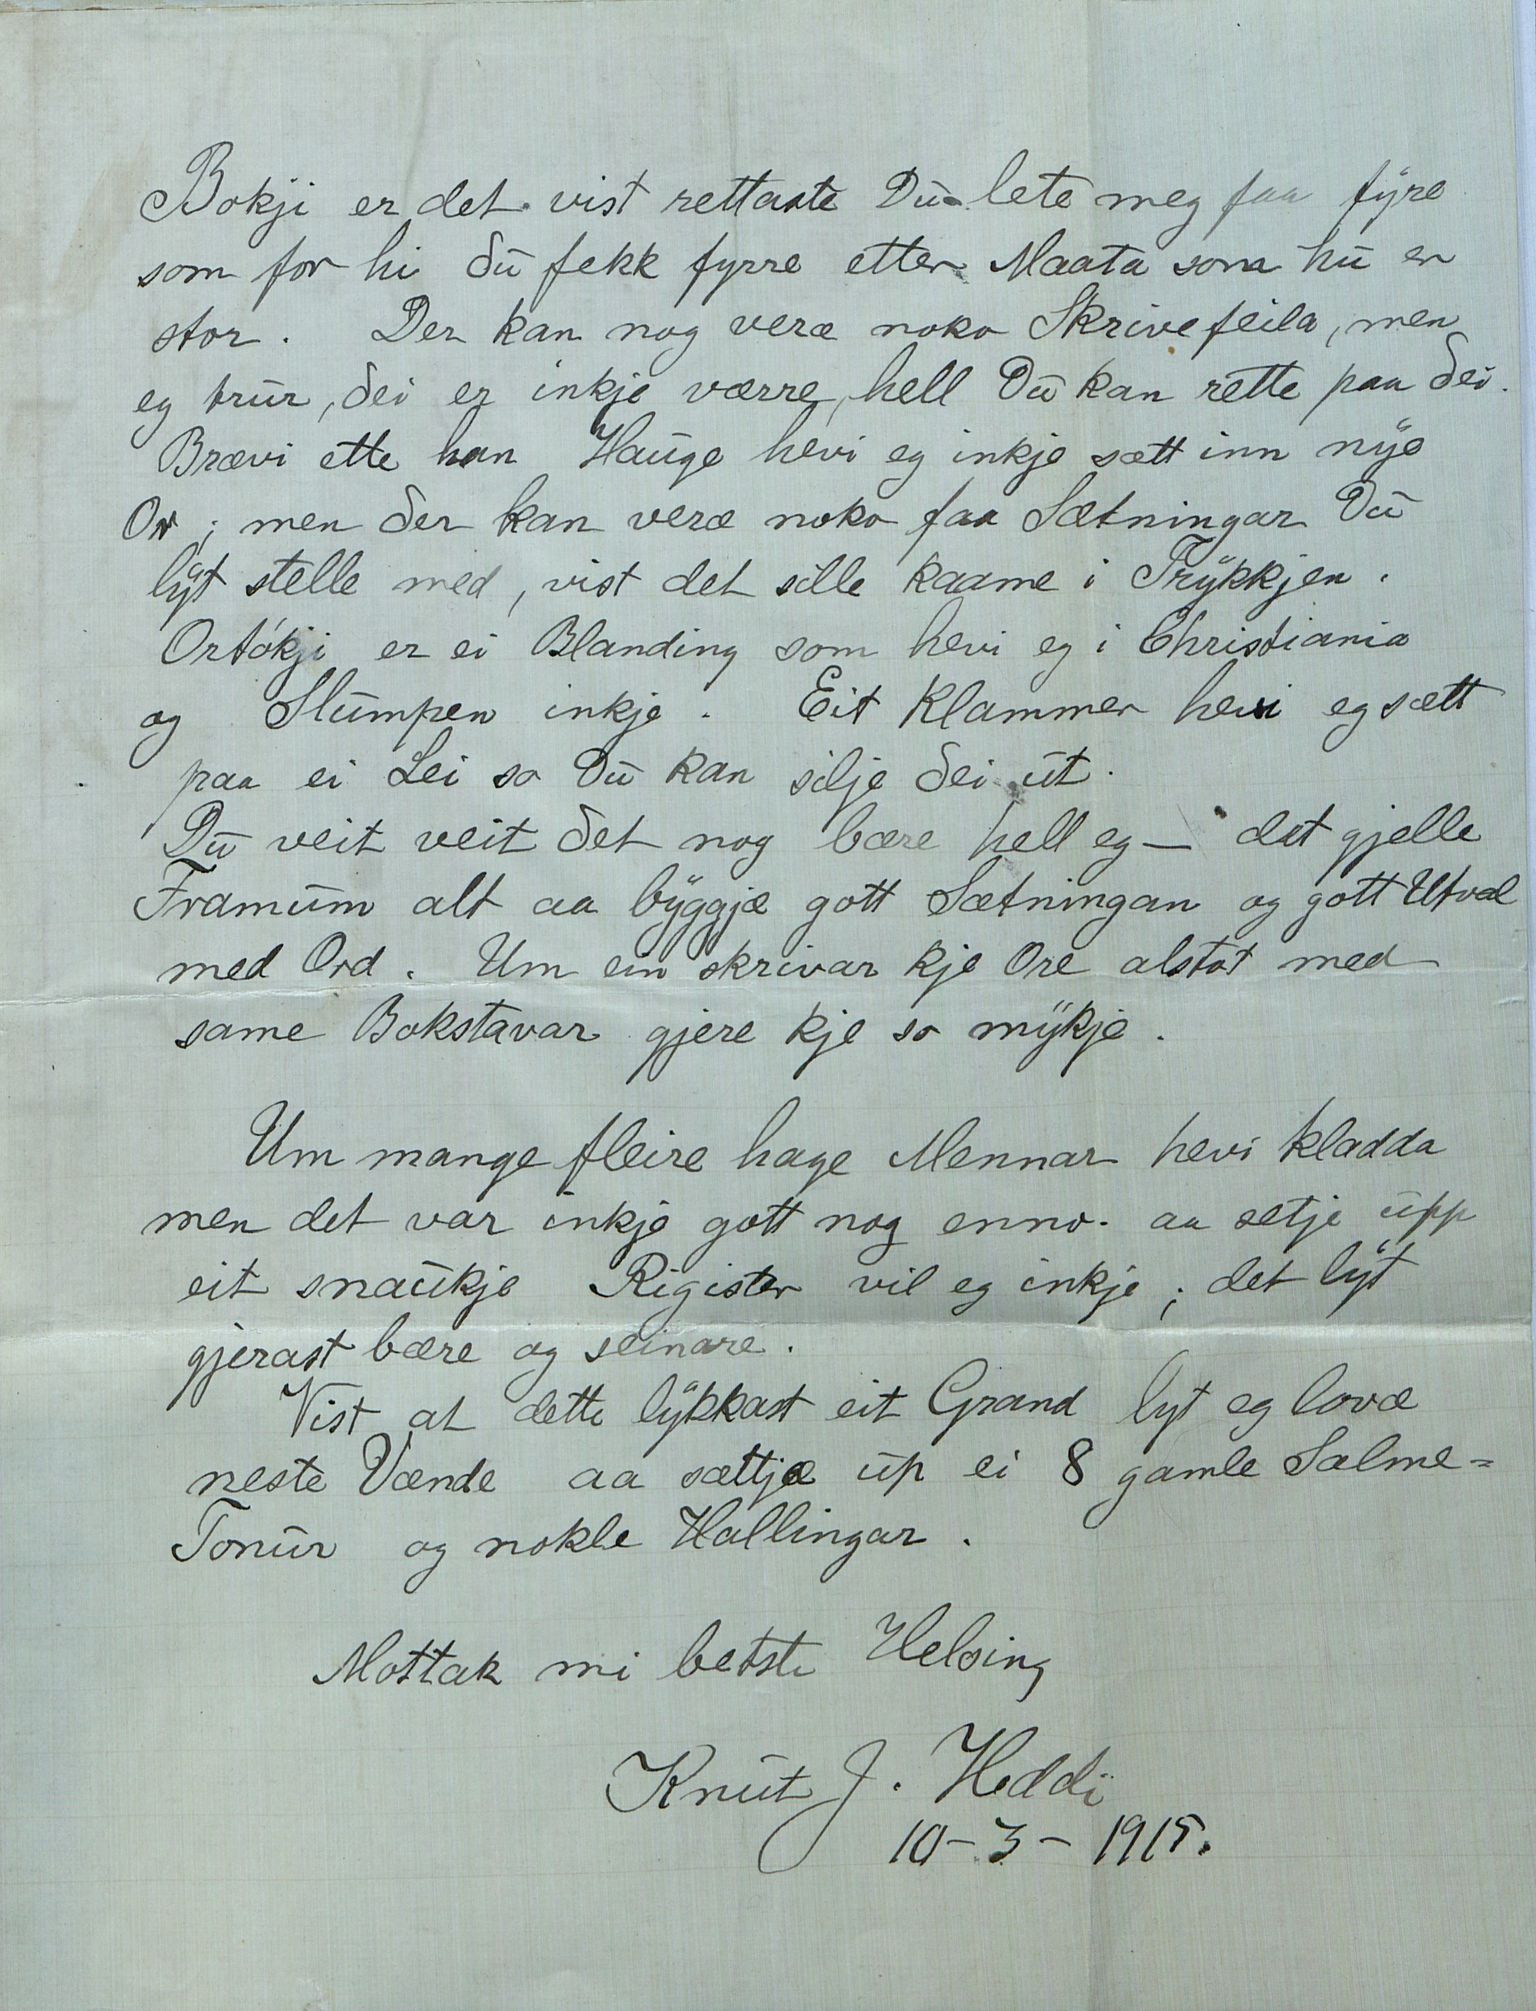 Bokji er det vist rettaste Du lete meg faa fyre
som for hi du fekk fyrre etter Maata som hu er
stor. Der kan nog veræ noko Skrivefeila, men
eg trur, dei er inkje værre, hell Du kan rette paa dei.
Brævi ette han Hauge hevi eg inkje sætt inn nye
Or; men der kan veræ noko faa Sætningar Du
lyt stelle med, vist det sille kaame i Trykkjen.
Ortókji er ei Blanding som hevi eg i Christiania
og Slumpen inkje. Eit Klammer hevi eg sætt
paa ei Lei so Du kan silje dei ut.
Du veit veit det nog bære hell eg — det gjelle
Framum alt aa byggjæ gott Sætningan og gott Utval
med Ord. Um ein skrivar kje Ore alstøt med
same Bokstavar gjere kje so mykje.
Um mange fleire hage Mennar hevi kladda
men det var inkje gott nog enno. aa setje upp
eit snaukje Rigister vil eg inkje; det lyt
gjerast bære og seinare.
Vist at dette lykkast eit Grand lyt eg lovæ
neste Vænde aa sættjæ up ei 8 gamle Salme=
Tonur og nokle Hallingar.
Mottak mi betste Helsing
Knut J. Heddi
10-3-1915.